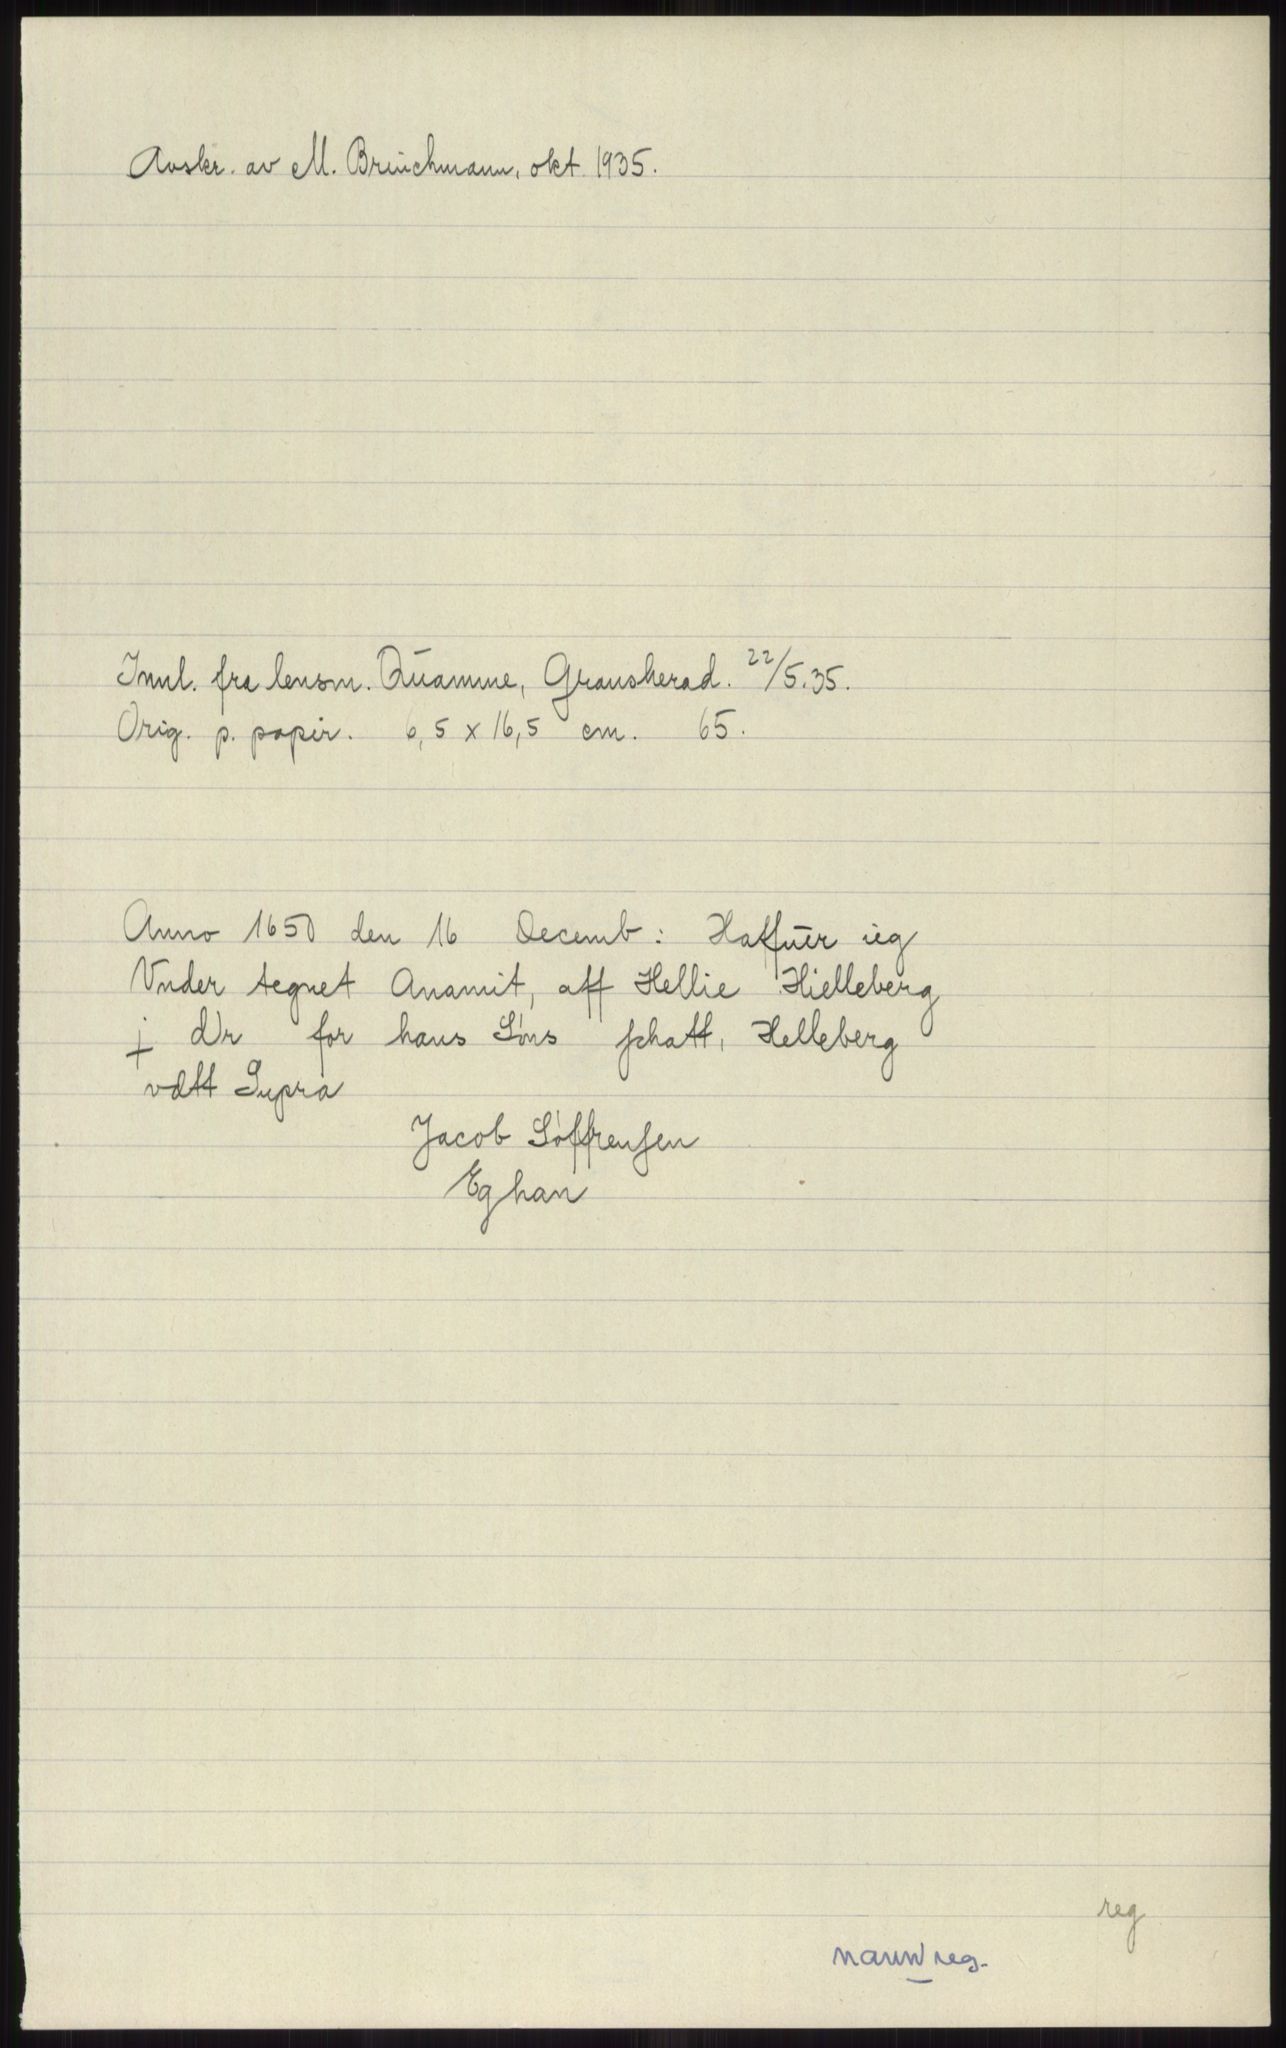 Avskr. av M. Brinchmann, okt. 1935.
Innl. fra lensm. Quamme, Gransherad. 22/5.35.
Orig. p. papir. 6,5 x 16,5 cm. 65.
Anno 1650 den 16 Decemb: Haffuer ieg
Vnder tegnet Anamit, aff Hellie Hielleberg
j dr for hans Søns schatt, Helleberg
vdtt Supra
Jacob Søffrensen
Eghan
reg
navn reg.